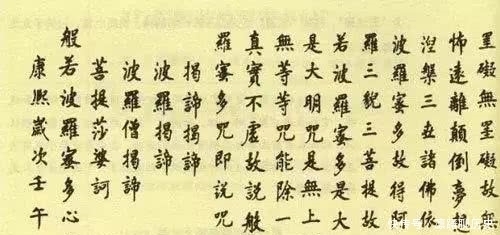 罣礙無罣礙故無
怖遠離顛倒夢想
涅槃三世諸佛依
波羅蜜多故得阿
羅三藐三菩提故
若波羅蜜多是大
是大明咒是無上
無等等咒能除一
真實不虛故說般
羅蜜多咒即說咒
揭諦揭諦
波羅揭諦
波羅僧揭諦
菩提莎婆訶
般若波羅蜜多心
康熙歲次壬午